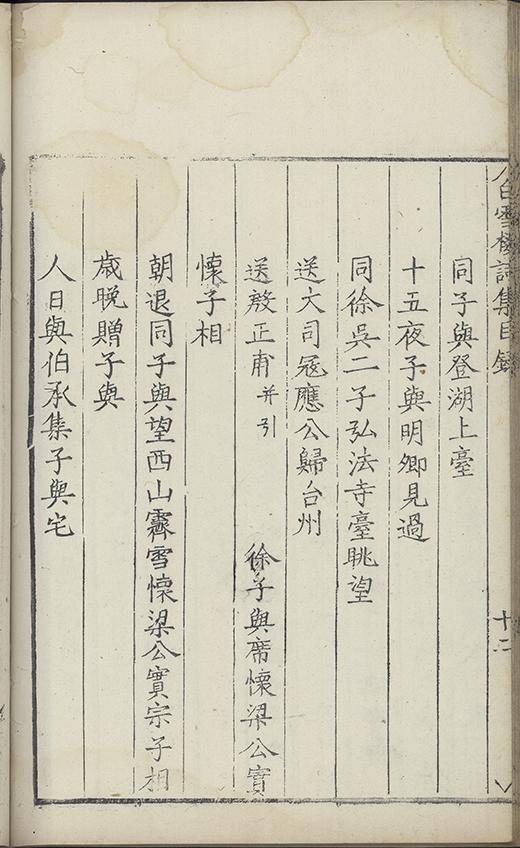 白雪樓詩集目錄 十二
同子與登湖上臺
十五夜子與明卿見過
同徐吳二子弘法寺臺眺望
送大司寇應公歸台州
送殷正甫并引 徐子與席懷梁公實
懷子相
朝退同子與望西山霽雪懷梁公實宗子相
歲晚贈子與
人日與伯承集子與宅